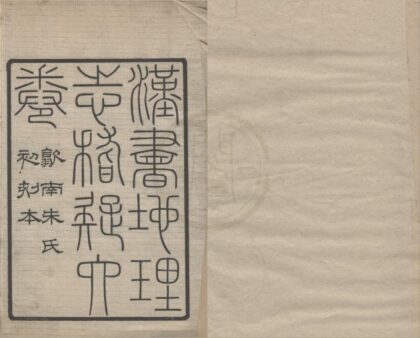 漢書地理
志稽疑六
卷
南朱氏
初刻本